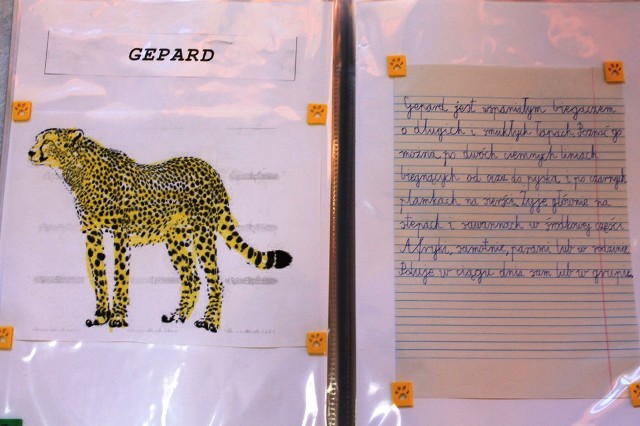 GEPARD
Gepard jest wspaniałym biegaczem
o długich i smukłych łapach. Poznać go
można po dwóch ciemnych liniach
biegnących od oczu do pyska i po czarnych
plamkach na sierści. Żyje głównie na
stepach i sawannach w środkowej części
Afryki, samotnie, parami lub w rodzinie.
Poluje w ciągu dnia sam lub w grupie.